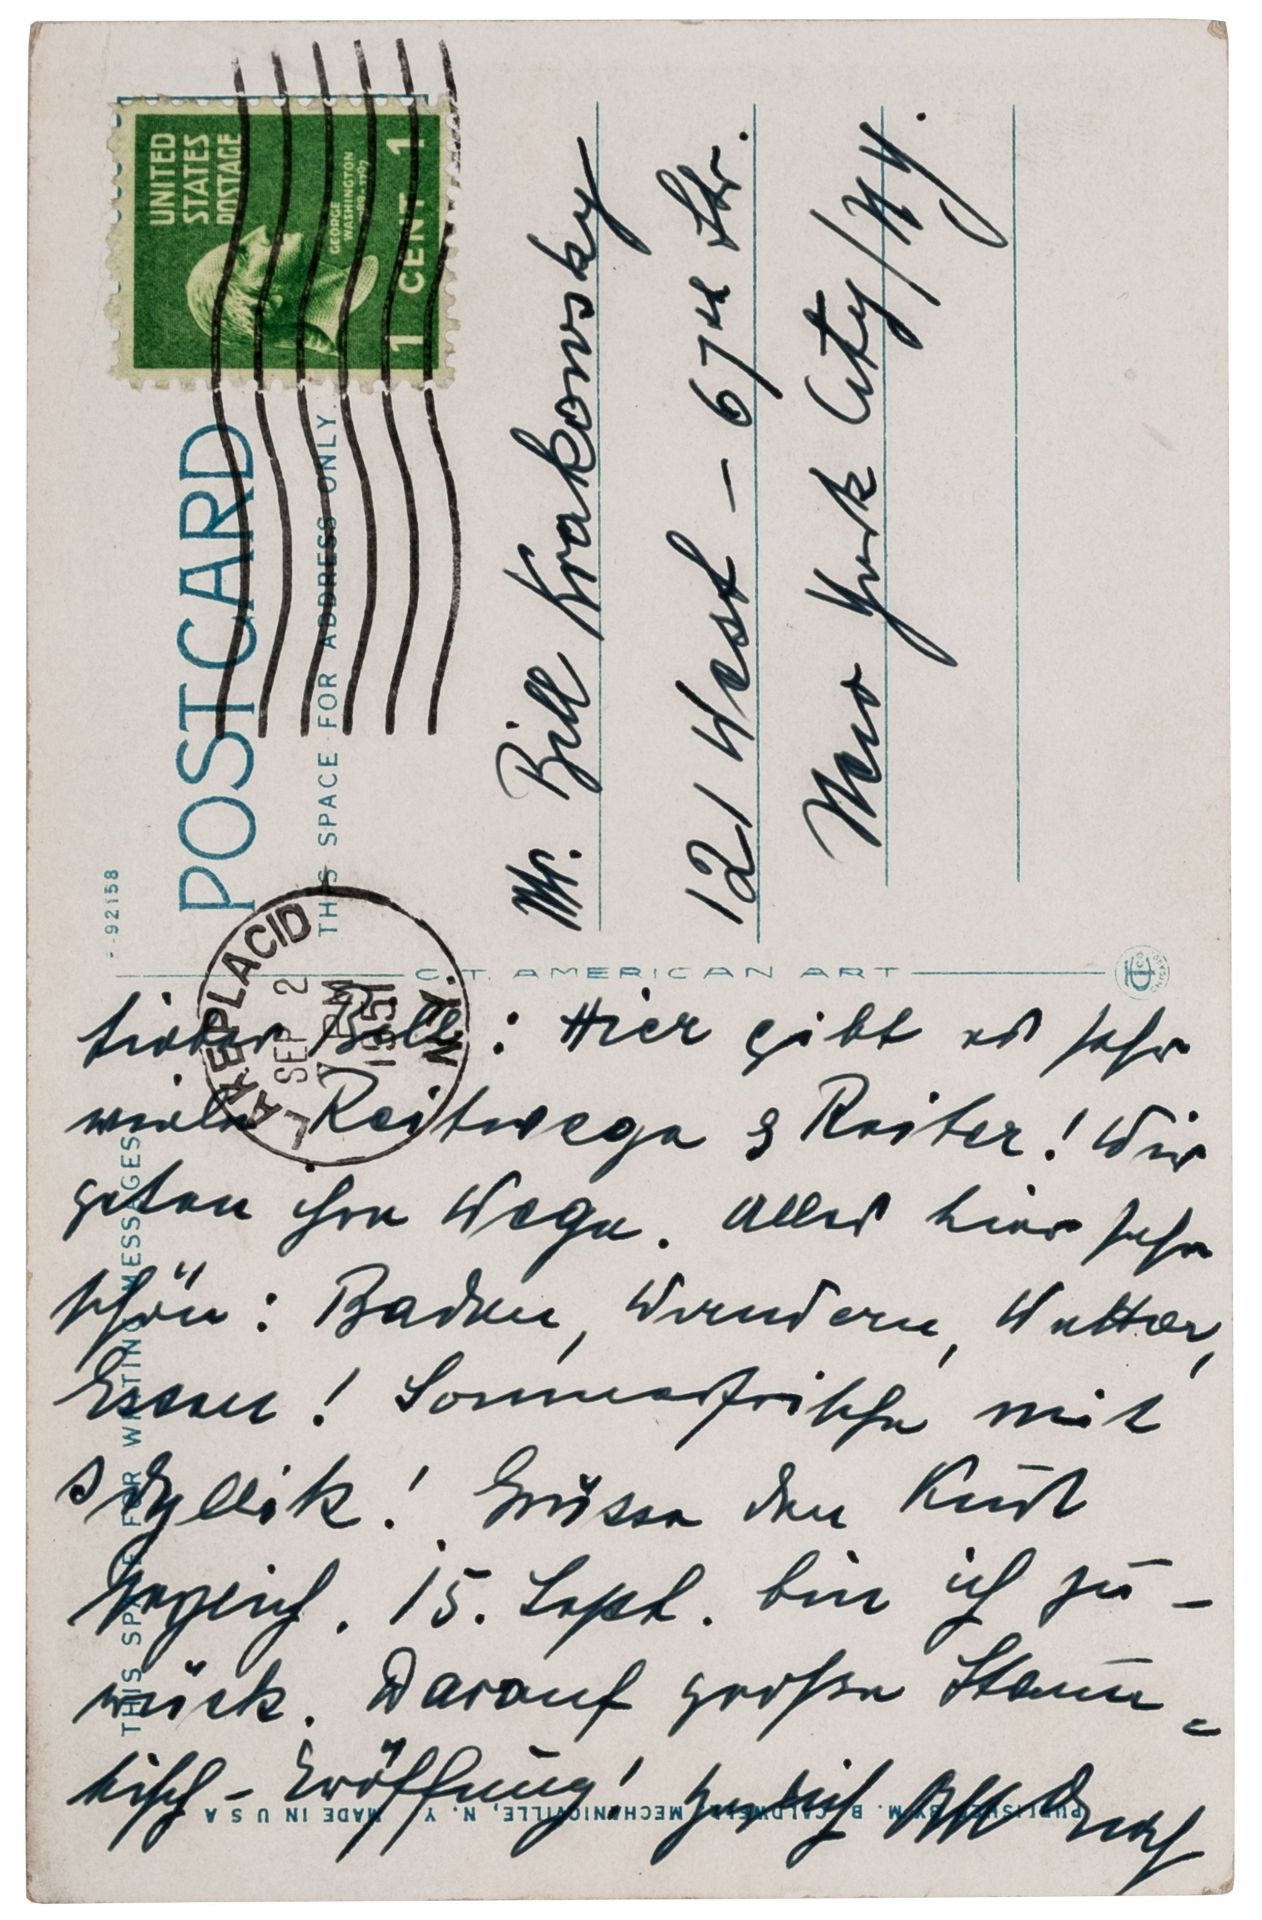 UNITED
STATES
POSTAGE
GEORGE
WASHINGTON
1789-1797
1 CENT 1
-92158
POST CARD
THIS SPACE FOR ADDRESS ONLY
LAKE PLACID
SEP 2
PM
1951
N.Y.
Mr. Bill Krakowsky
121 West – 67th Str.
New York City/NY.
C.T. AMERICAN ART
THIS SPACE FOR WRITING MESSAGES
Lieber Bill: Hier gibt es sehr
viele Reitwege & Reiter! Wir
gehen ihre Wege. Alles hier sehr
schön: Baden, Wandern, Wetter,
Essen! Sommerfrische mit
Idyllik! Grüsse den Kurt
. 15. Sept. bin ich zu-
rück. Darauf große Stamm-
tisch-Eröffnung! Herzlich
PUBLISHED BY M. B. CALDWELL, MECHANICVILLE, N. Y. MADE IN U S A